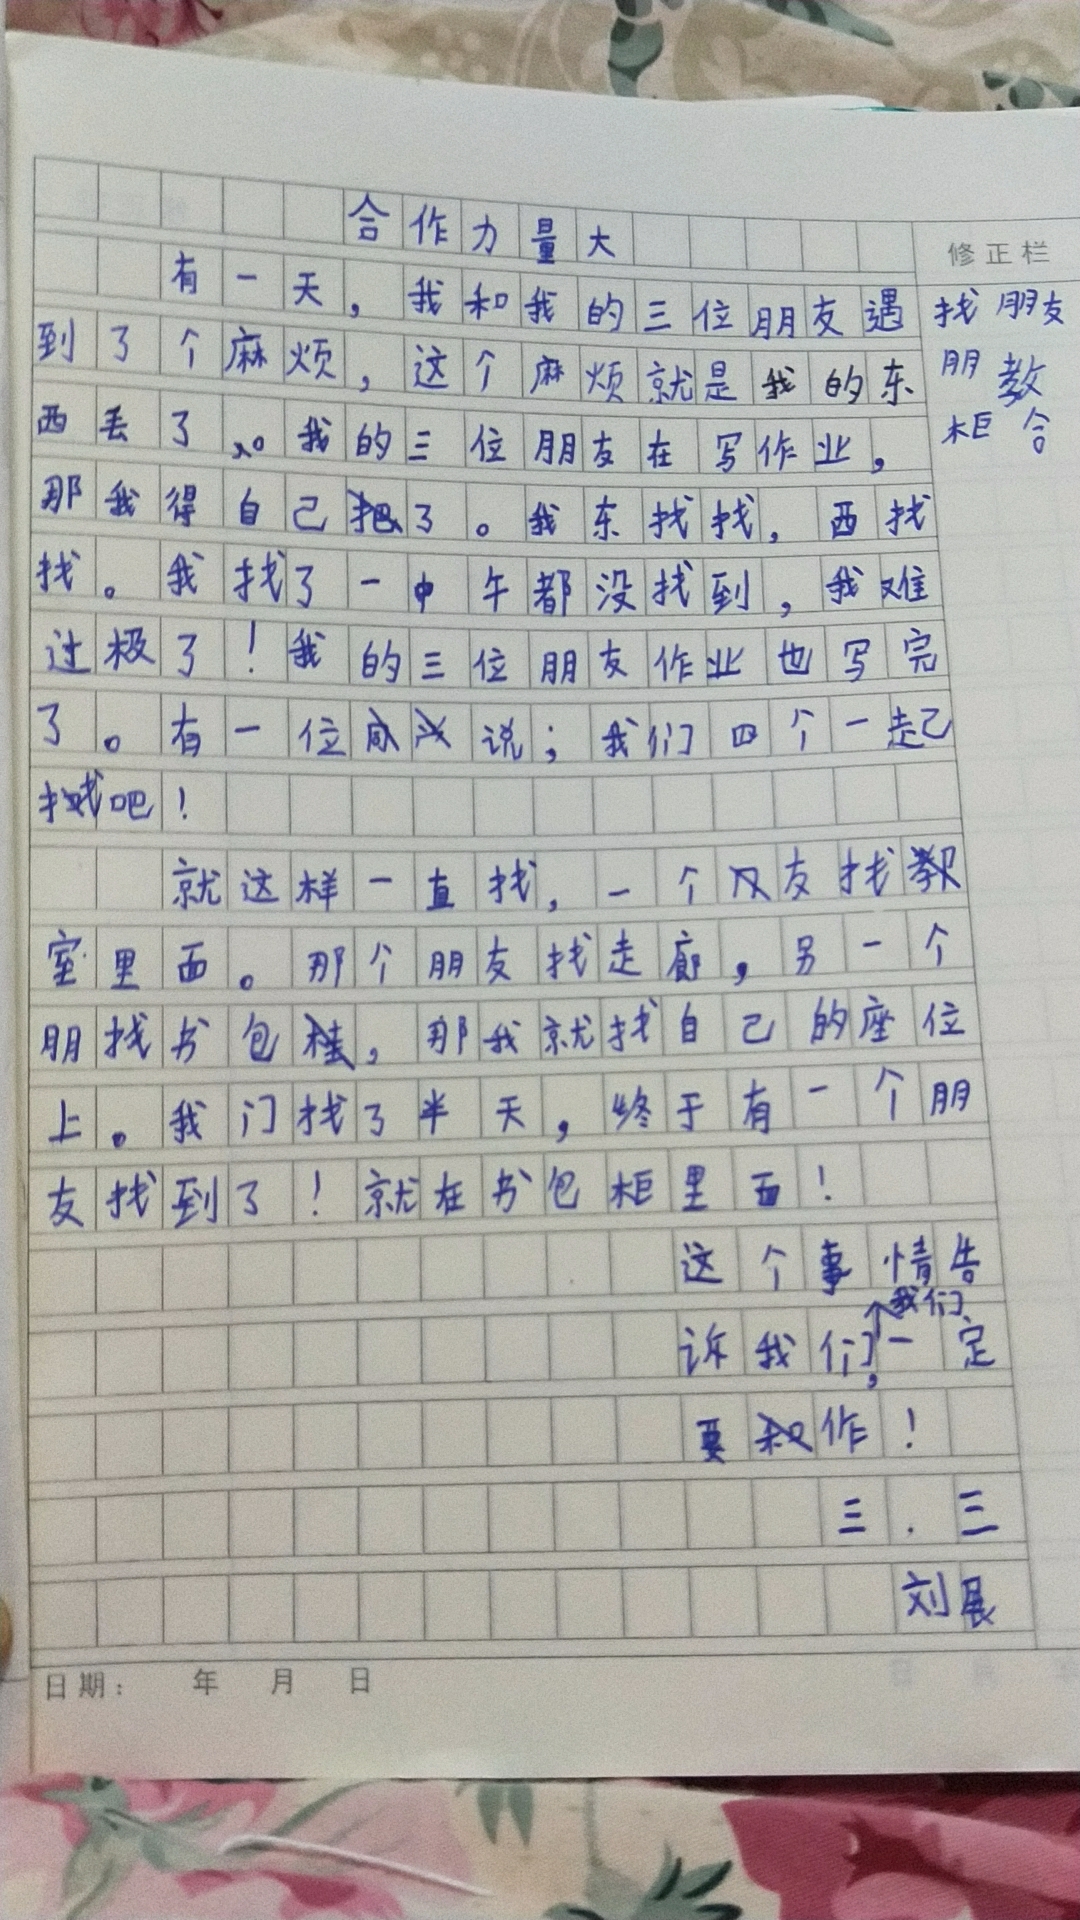 合作力量大
修正栏
有一天，我和我的三位朋友遇
找朋友
到了个麻烦，这个麻烦就是我的东
朋教
西丢了。我的三位朋友在写作业，
柜合
那我得自己了。我东找找，西找
找。我找了一中午都没找到，我难
过极了！我的三位朋友作业也写完
了。有一位说；我们四个一起
找吧！
就这样一直找，一个友找
室里面。那个朋友找走廊，另一个
朋找书包，那我就找自己的座位
上。我门找了半天，终于有一个朋
友找到了！就在书包柜里面！
这个事情告
我们
诉我们，一定
要作！
三.三
刘展
日期： 年 月 日